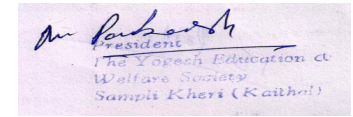 President
The Yogesh Education &
Welfare Society
Sampli Kheri (Kaithal)